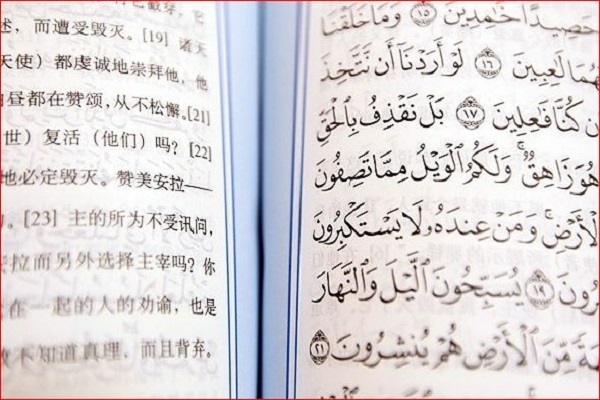 述，而遭受毁灭。[19] 诸天
天使）都虔诚地崇拜他，他
昼都在赞颂，从不松懈。[21]
世）复活（他们）吗？[22]
地必定毁灭。赞美安拉——
。[23] 主的所为不受讯问，
拉而另外选择主宰吗？你
在一起的人的劝谕，也是
不知道真理，而且背弃。
حَصِيدًا خَٰمِدِينَ ١٥ وَمَا خَلَقْنَا
لَٰعِبِينَ ١٦ لَوْ أَرَدْنَآ أَن نَّتَّخِذَ
كُنَّا فَٰعِلِينَ ١٧ بَلْ نَقْذِفُ بِٱلْحَقِّ
هُوَ زَاهِقٌ ۚ وَلَكُمُ ٱلْوَيْلُ مِمَّا تَصِفُونَ
ٱلْأَرْضِ ۚ وَمَنْ عِندَهُۥ لَا يَسْتَكْبِرُونَ
١٩ يُسَبِّحُونَ ٱلَّيْلَ وَٱلنَّهَارَ
مِّنَ ٱلْأَرْضِ هُمْ يُنشِرُونَ ٢١